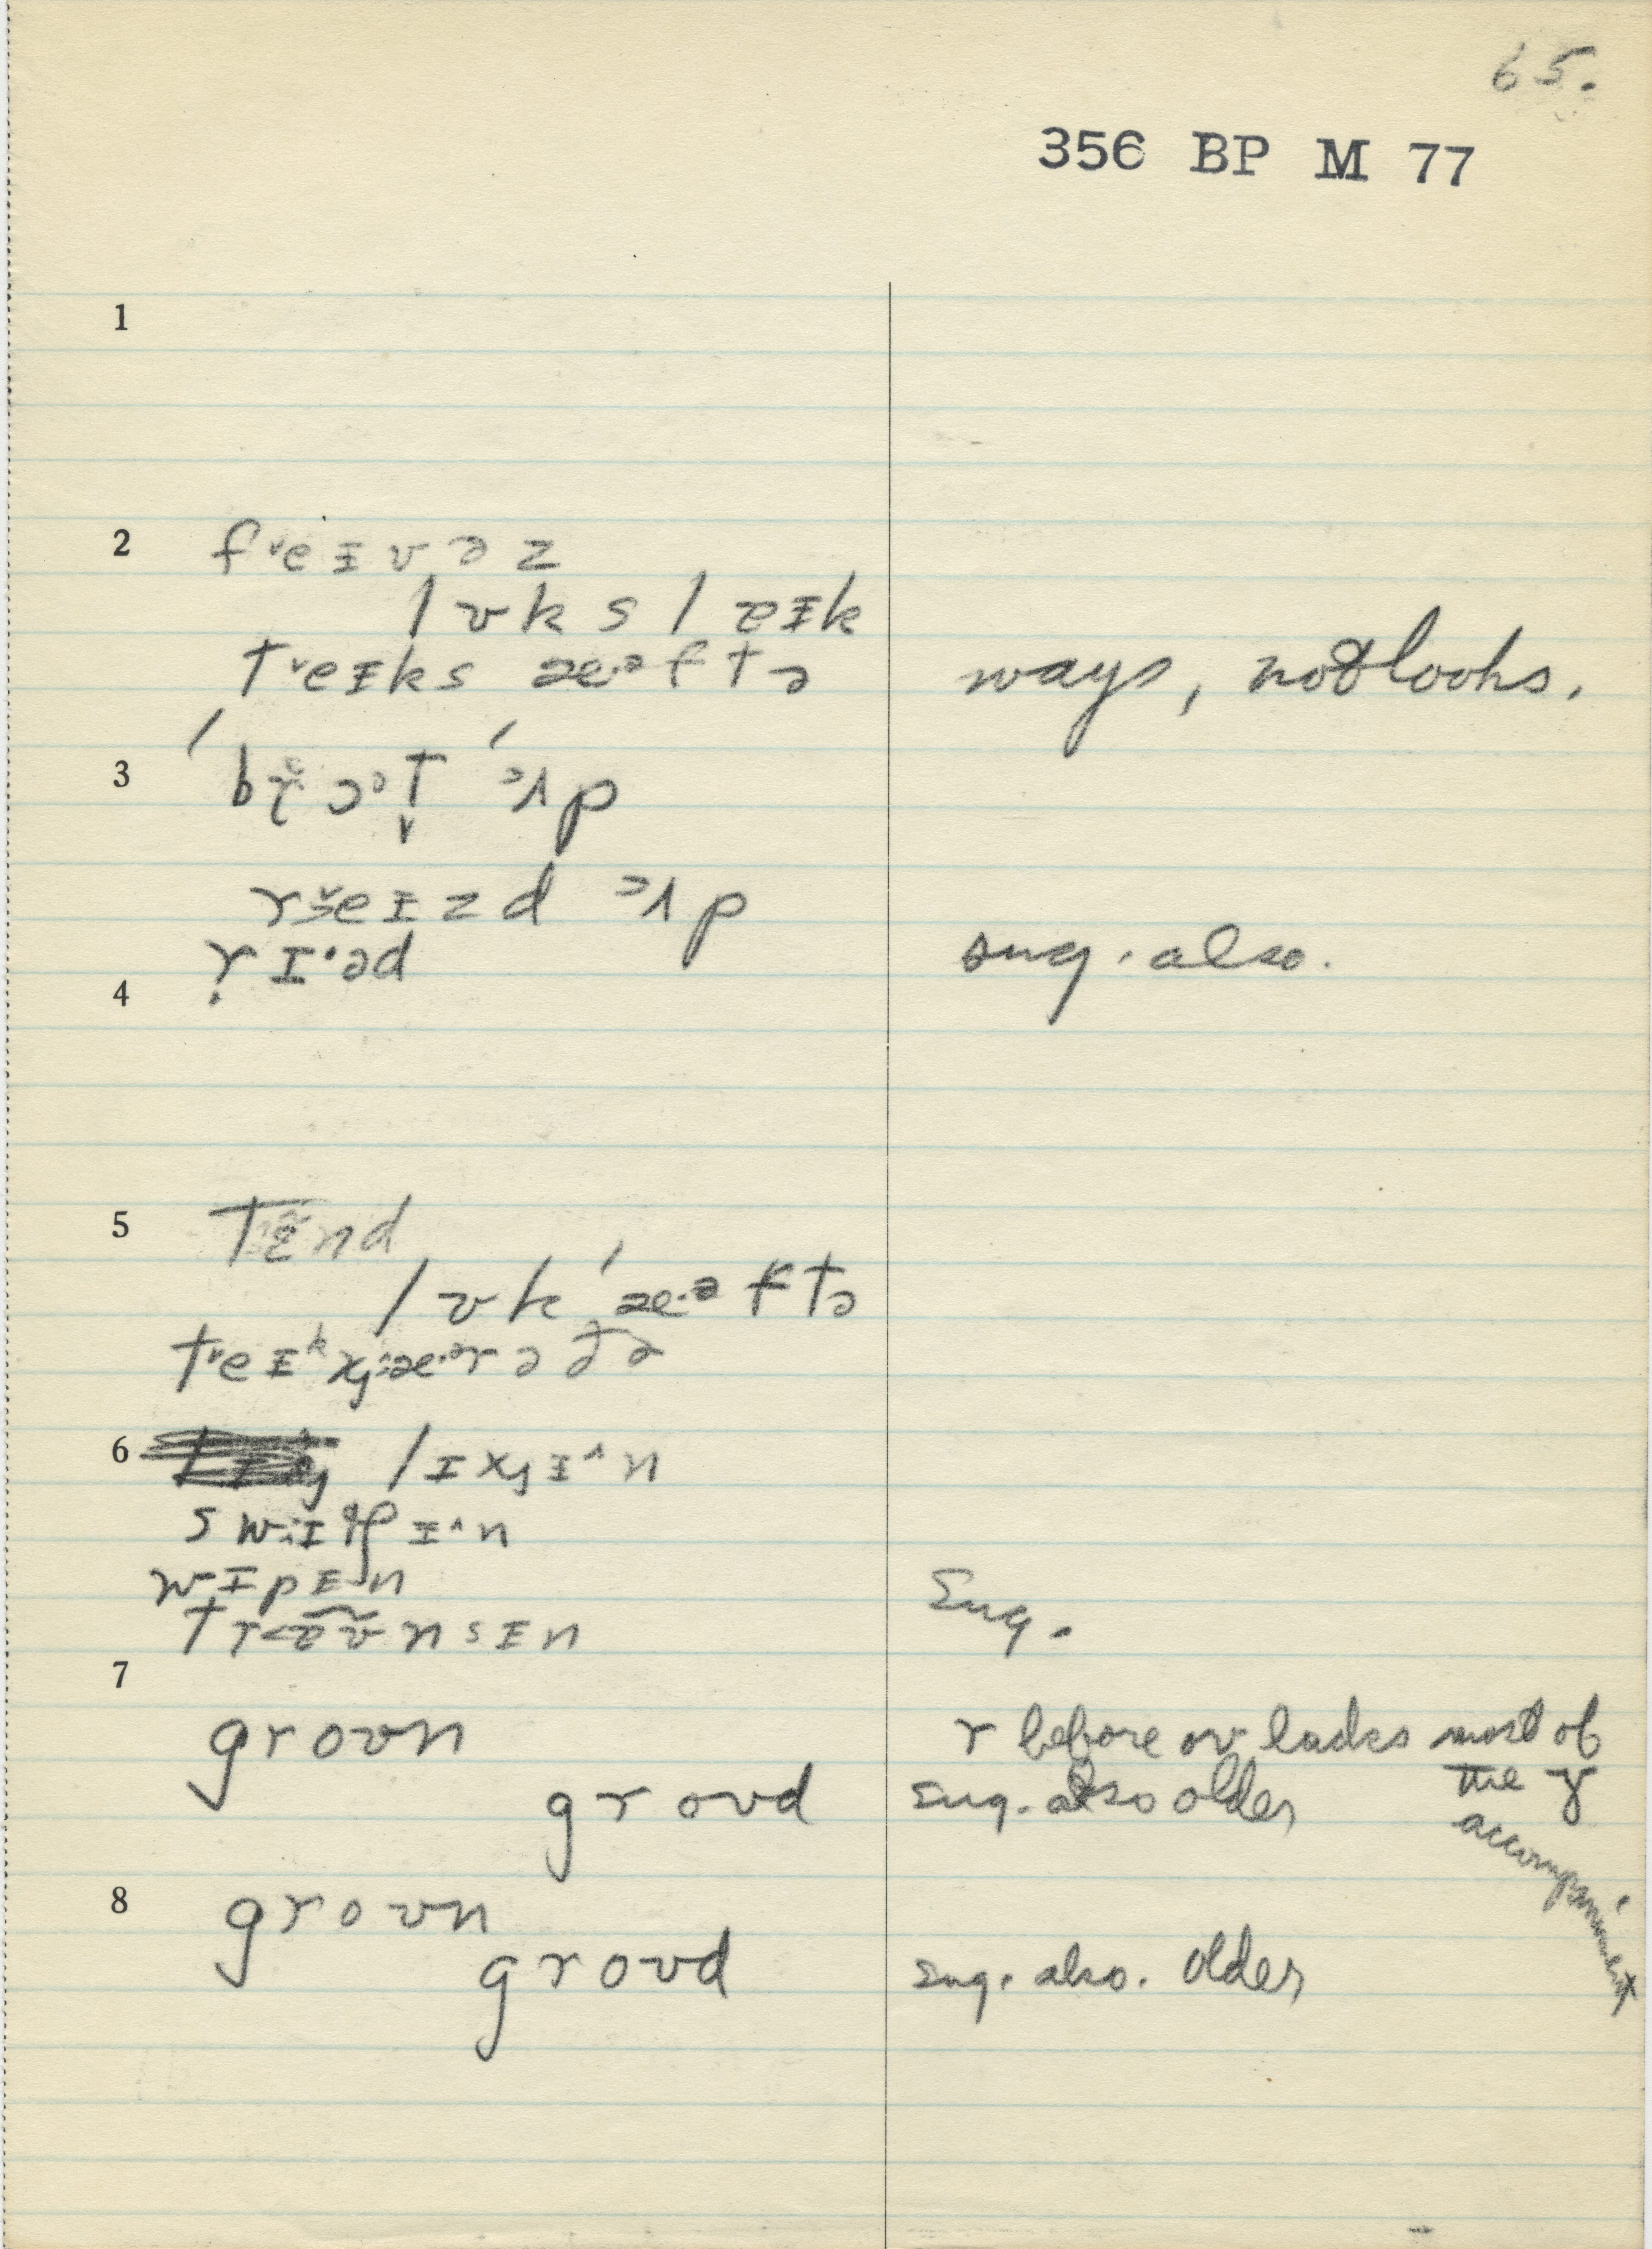 65.
356 BP M 77
1
2 fˇeɪvəz
lʊks leɪk
tˇeɪks æ·ᵊftə ways, not looks.
3 ˈbrɔᵊt̬ ˈᵊʌp
rɜˇeɪzd ᵊʌp
rɪ·əd sug. also.
4
5 tɛ̃nd
lʊk ˈæ·ᵊftə
tˇeɪᵏ
6 lɪxjɪ^n
ɪ^n
wɪpɪn
nsɪn Sug.
7
groʊn r before oʊ lacks most of
the ɤ
groʊd sug. also older
accompaniment
8 groʊn
groʊd sug. also. older